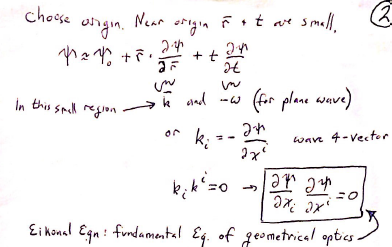 ②
Choose origin. Near origin r̄ + t are small,
ψ ≈ ψ₀ + r̄ · ∂ψ/∂r̄ + t ∂ψ/∂t
In this small region → k̄ and -ω (for plane wave)
or kᵢ = - ∂ψ/∂xⁱ wave 4-vector
kᵢkⁱ=0 → ∂ψ/∂xᵢ ∂ψ/∂xⁱ = 0
Eikonal Eqn: fundamental Eq. of geometrical optics